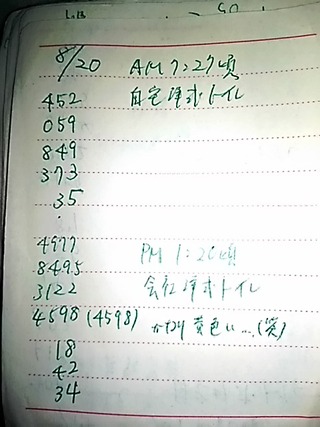 8/20 AM 7:27頃
452 自宅洋式トイレ
059
849
373
35
.
4977 PM 1:26頃
8495 会社洋式トイレ
3122
4598 (4598) かなり黄色い…(笑)
18
42
34